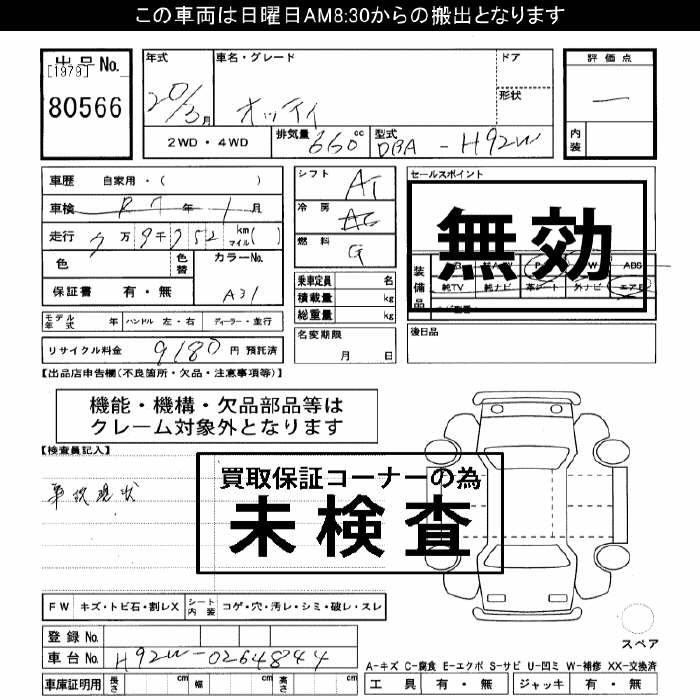 この車両は日曜日AM8:30からの搬出となります
出品No.
[1979]
80566
年式
20/3月
車名・グレード
オッティ
ドア
形状
2WD・4WD
排気量 660 cc
型式 DBA - H92W
評価点
内装
車歴 自家用・( )
車検 R7年1月
走行 万 千 km マイル( )
色 色替 カラーNo.
A31
保証書 有・無
シフト AT
冷房 AC
燃料 G
乗車定員 名
積載量 kg
総重量 kg
セールスポイント
無効
装備品
ABS
純TV 純ナビ 革シート 外ナビ エアB
モデル年式 年 ハンドル 左・右 ディーラー・並行
名変期限
月 日
後日品
リサイクル料金 9180 円 預託済
【出品店申告欄(不良箇所・欠品・注意事項等)】
機能・機構・欠品部品等は
クレーム対象外となります
【検査員記入】
買取保証コーナーの為
未検査
事故現状
FW キズ・トビ石・割レX シート内装 コゲ・穴・汚レ・シミ・破レ・スレ
登録No.
車台No. H92W-0264844
車庫証明用 長さ cm 幅 cm 高さ cm
スペア
A-キズ C-腐食 E-エクボ S-サビ U-凹ミ W-補修 XX-交換済
工具 有・無 ジャッキ 有・無